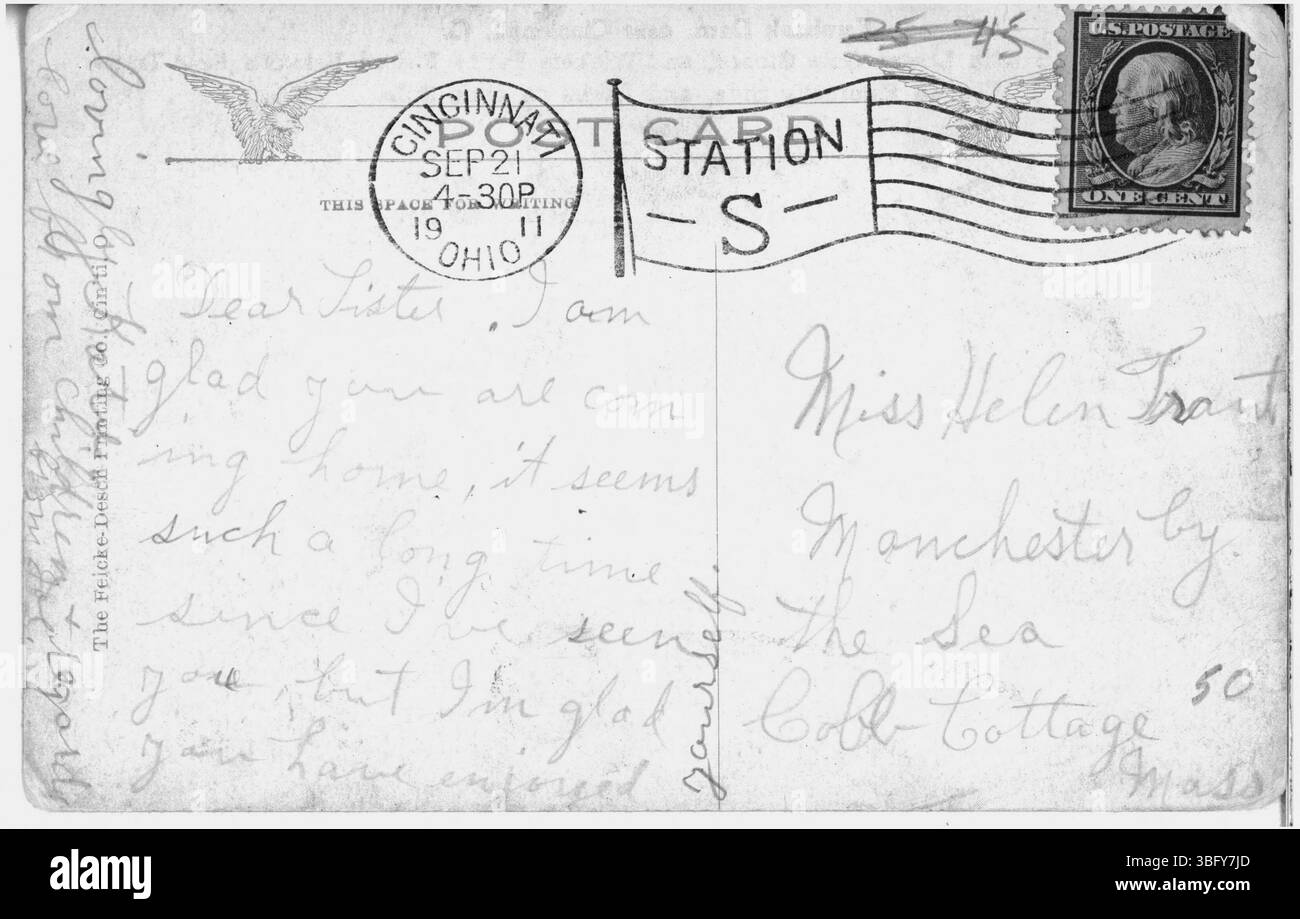 25 45
U.S. POSTAGE
ONE CENT
CINCINNATI
SEP 21
4-30P
19 11
OHIO
STATION
-S-
POST CARD
THIS SPACE FOR WRITING
Dear Sister, I am
glad you are com
ing home, it seems
such a long time
since I've seen
you, but I'm glad
you have enjoyed
yourself.
Lovingly
care of our children &
The Feicke-Desch Printing Co., Cin'ti, O.
Miss Helen Traut
Manchester by
the Sea
Cobb Cottage
Mass
50
alamy
Image ID: 3BFY7JD
www.alamy.com